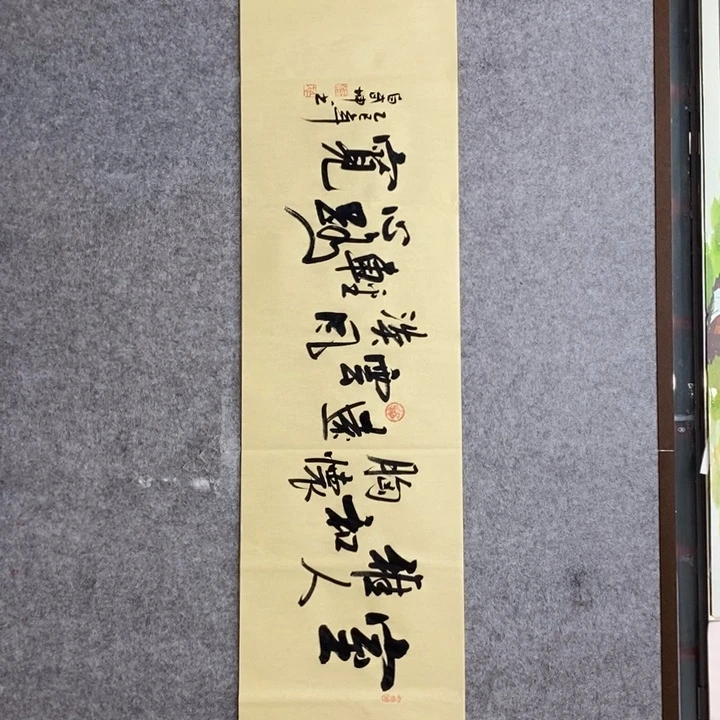 室雅人和胸懷遠
雲淡風輕心路寬
乙巳年